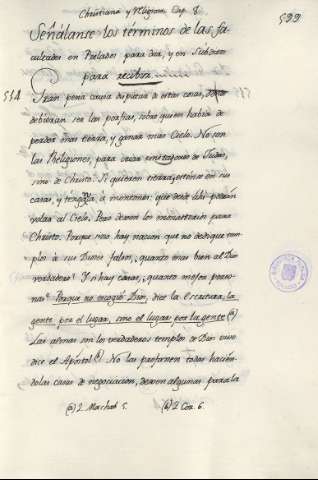 Christiana y Religiosa Cap. 8.
599
Señálanse los terminos de las fa-
cultades en Prelados para dar, y en Subditos
para recibir.
514 Gran pena causa disputar de estas cosas,
debieran ser las porfias, sobre quien habia de
perder mas tierra, y ganar mas Cielo. No son
las Religiones, para criar imitadores de Judas,
sino de Christo. Si quieren tierra, estense en sus
casas, y tengala á montones: que desde alli podrán
volar al Cielo. Pero dexen los monasterios para
Christo. Porque sino hay nacion que no dedique tem-
plo á sus Dioses falsos, quanto mas bien al Dios
verdadero? Y si hay casas, quanto mejor perso-
nas? Porque no escogió Dios, dice la Escritura, la
gente por el lugar, sino el lugar por la gente (a)
Las almas son los verdaderos templos de Dios vivo
dice el Apostol (b). No las profanen todas hacien-
dolas casas de negociacion, dexen algunas para la
(a) 2. Machab 5. (b) 2 Cor. 6.